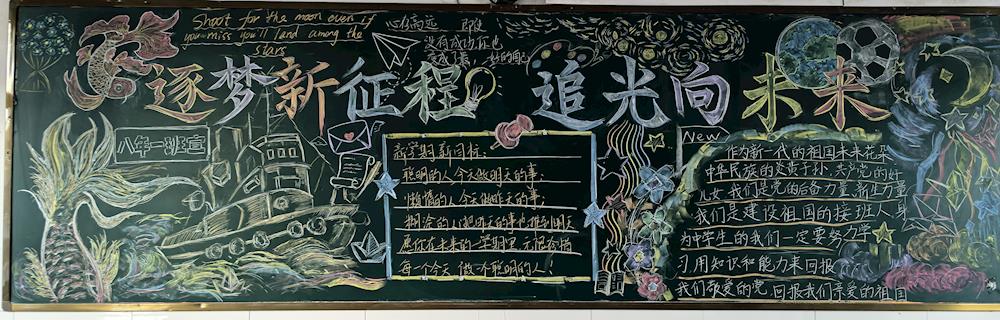 Shoot for the moon even if
you miss you'll land among the
stars
心存高远 即使
没有成功你也
逐梦新征程 追光向未来
八年一班宣
新学期新目标:
聪明的人,今天做明天的事;
懒惰的人今天做昨天的事;
糊涂的人把昨天的事也推到明天
愿你在未来的一学期里
每一个今天 做一个聪明的人;
New
作为新一代的祖国未来花朵
中华民族的炎黄子孙,共产党的好
儿女,我们是党的后备力量,新生力量
我们是建设祖国的接班人,身
为中学生的我们一定要努力学
习,用知识和能力来回报
我们敬爱的党,回报我们亲爱的祖国